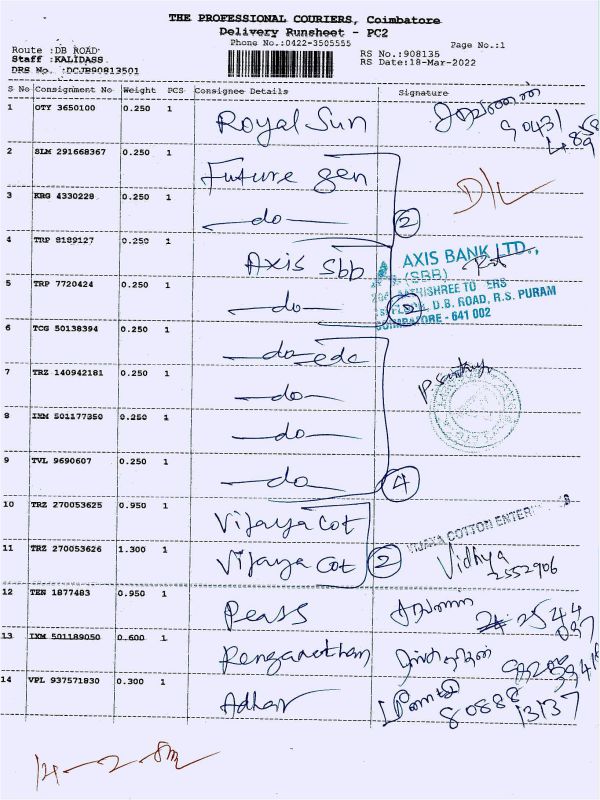 THE PROFESSIONAL COURIERS, Coimbatore
Delivery Runsheet - PC2
Phone No.:0422-3505555
Page No.:1
Route :DB ROAD
RS No.:908135
Staff :KALIDASS
RS Date:18-Mar-2022
DRS No. :DCJB90813501
S No Consignment No Weight PCS Consignee Details Signature
1 OTY 3650100 0.250 1 Royal Sun
90431
2 SLM 291668367 0.250 1 Future gen
D/L
3 KRG 4330228 0.250 1 do 2
4 TRP 8189127 0.250 1 Axis Sbb
AXIS BANK LTD.,
(SBB)
5 TRP 7720424 0.250 1 do
D.B. ROAD, R.S. PURAM
COIMBATORE - 641 002
6 TCG 50138394 0.250 1 do edc
7 TRZ 140942181 0.250 1 do
8 IXM 501177350 0.250 1 do
9 TVL 9690607 0.250 1 do 4
10 TRZ 270053625 0.950 1 Vijaya Cot
VIJAYA COTTON
11 TRZ 270053626 1.300 1 Vijaya Cot 2 Vidhya
2552906
12 TEN 1877483 0.950 1 Peass
2544
097
13 IXM 501189050 0.600 1 Renganatham
14 VPL 937571830 0.300 1 Adhar
80888
13137